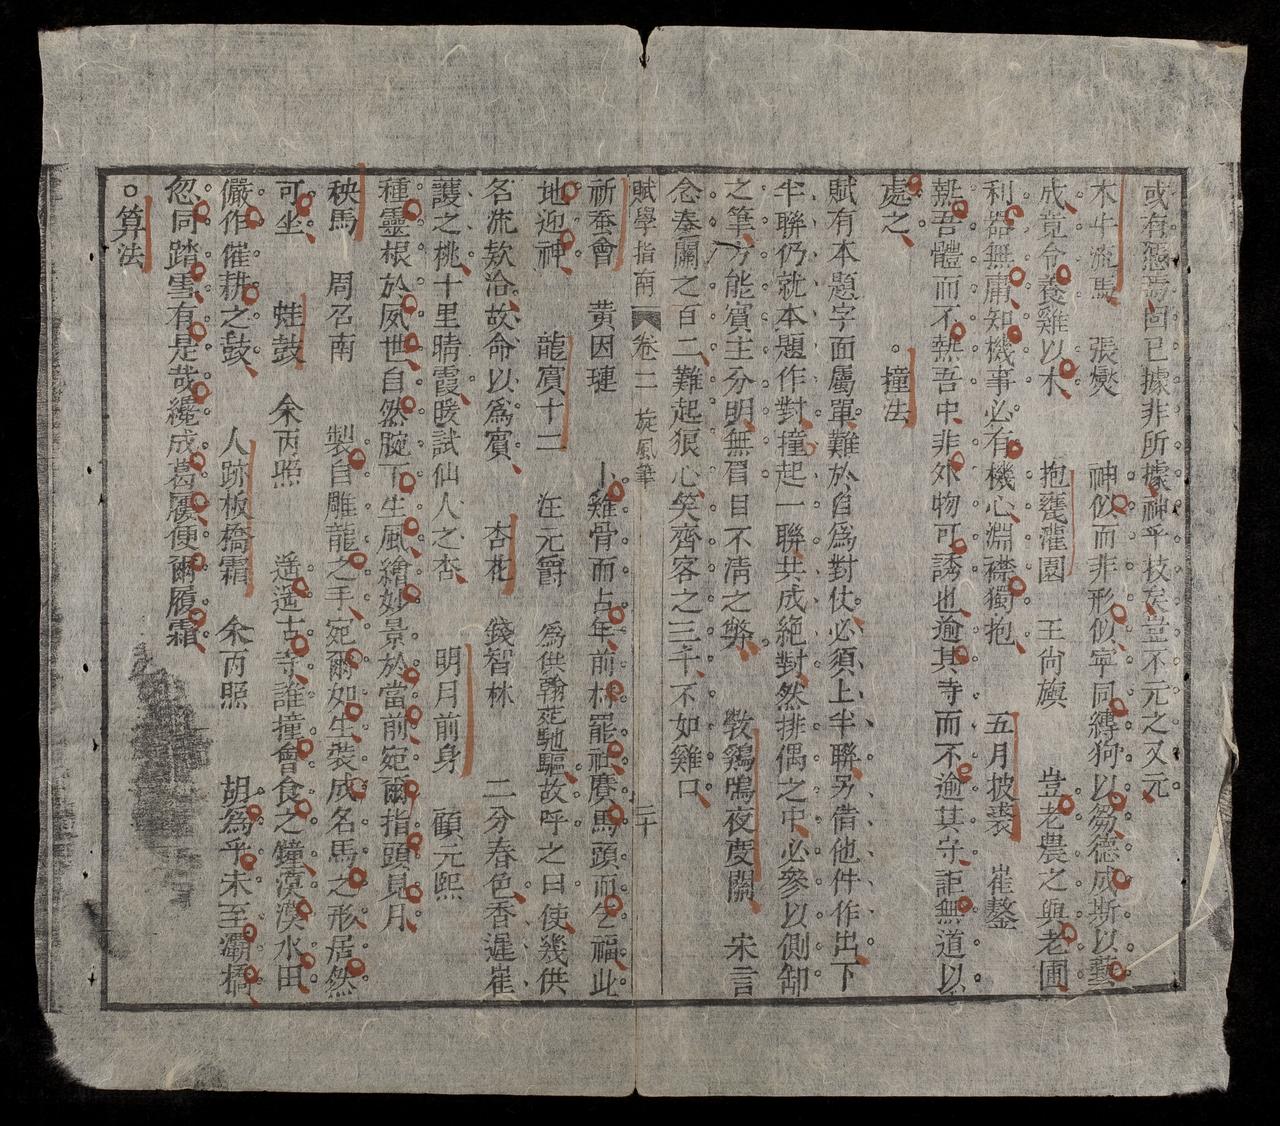 或有憑焉固已據非所據神乎技矣豈不元之又元
木牛流馬 張爕 神似而非形似寧同縛狗以芻德成斯以藝
成竟令養雞以木 抱甕灌園 王尙旟 豈老農之與老圃
利器無庸知機事必有機心淵襟獨抱 五月披裘 崔鏊
熱吾體而不熱吾中非外物可誘也逾其寺而不逾其守詎無道以
處之
撞法
賦有本題字面屬單難於自爲對仗必須上半聯另借他件作出下
半聯仍就本題作對撞起一聯共成絶對然排偶之中必參以側卸
之筆方能賓主分明無眉目不清之弊 敩鷄鳴夜度關 宋言
念秦關之百二難起狠心笑齊客之三千不如雞口
賦學指南 卷二 旋風筆 二十
祈蚕會 黃因璉 卜雞骨而占年前村罷社賡馬頭而乞福此
地迎神 龍賓十二 汪元爵 爲供翰苑馳驅故呼之曰使幾供
名流欵洽故命以爲賓 杏花 錢智林 二分春色香遲崔
護之桃十里晴霞暖試仙人之杏 明月前身 顧元熙
種靈根於夙世自然腕下生風繪妙景於當前宛爾指頭見月
秧馬 周召南 製自雕龍之手宛爾如生裝成名馬之形居然
可坐 蛙鼓 余丙照 遥遥古寺誰撞會食之鐘漠漠水田
儼作催耕之鼓 人跡板橋霜 余丙照 胡爲乎未至灞橋
忽同踏雪有是哉纔成葛屨便爾履霜
算法